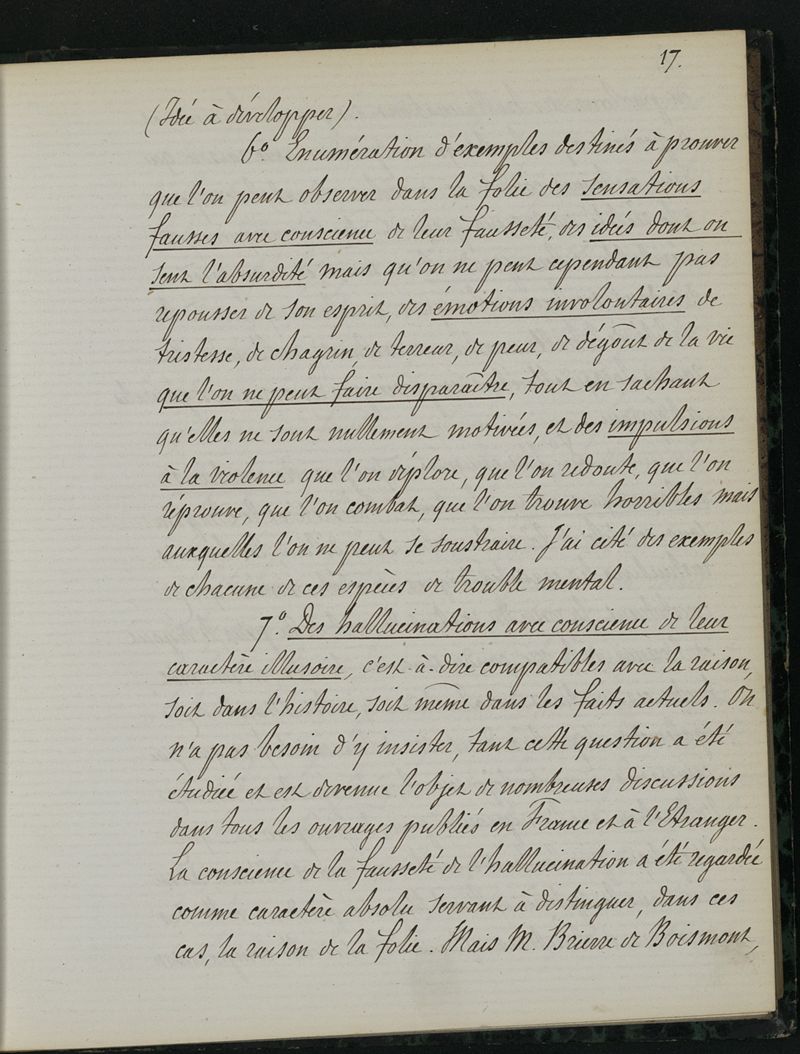 17.
(Idée à développer).
6º Enumération d'exemples destinés à prouver
que l'on peut observer dans la folie des sensations
fausses avec conscience de leur fausseté, des idées dont on
sent l'absurdité mais qu'on ne peut cependant pas
repousser de son esprit, des émotions involontaires de
tristesse, de chagrin, de terreur, de peur, de dégoût de la vie
que l'on ne peut faire disparaître, tout en sachant
qu'elles ne sont nullement motivées, et des impulsions
à la violence que l'on déplore, que l'on redoute, que l'on
réprouve, que l'on combat, que l'on trouve horribles mais
auxquelles l'on ne peut se soustraire. J'ai cité des exemples
de chacune de ces espèces de trouble mental.
7º. Des hallucinations avec conscience de leur
caractère illusoire, c'est-à-dire compatibles avec la raison,
soit dans l'histoire, soit même dans les faits actuels. On
n'a pas besoin d'y insister, tant cette question a été
étudiée et est devenue l'objet de nombreuses discussions
dans tous les ouvrages publiés en France et à l'Etranger.
La conscience de la fausseté de l'hallucination a été regardée
comme caractère absolu servant à distinguer, dans ces
cas, la raison de la folie. Mais M. Brierre de Boismont,